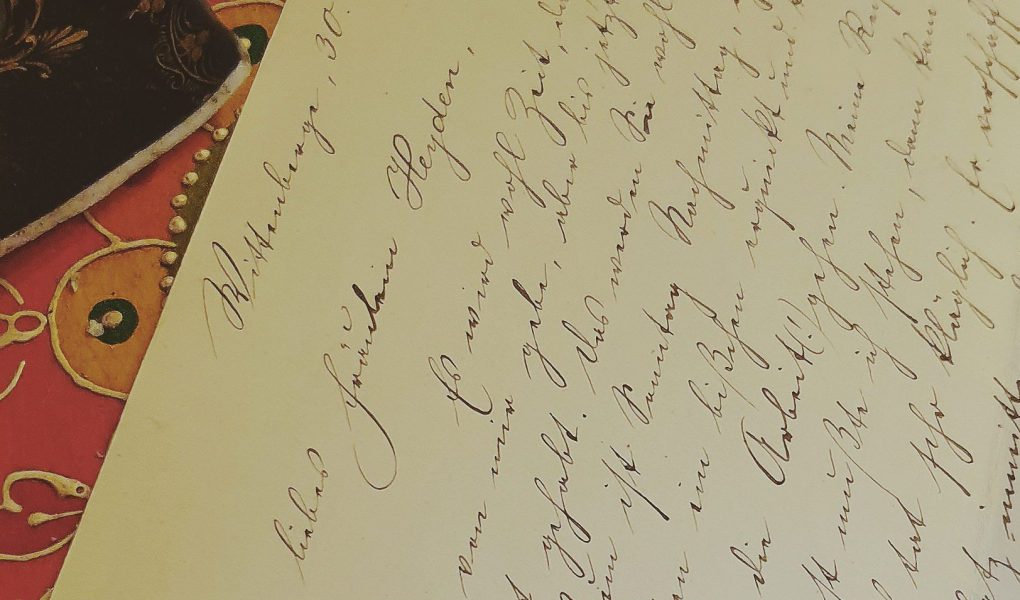 Wittenberge, 30.
liebes Fräulein Heyden,
Es wird wohl Zeit,
von mir gebe, aber bis jetzt
gehabt. Das werden Sie wohl
ist Sonntag Nachmittag,
ein bißchen erquickt und
die Arbeit(!) gehen. Meine
mußte ich stehen, dann kam
tat sehr kläglich. Er